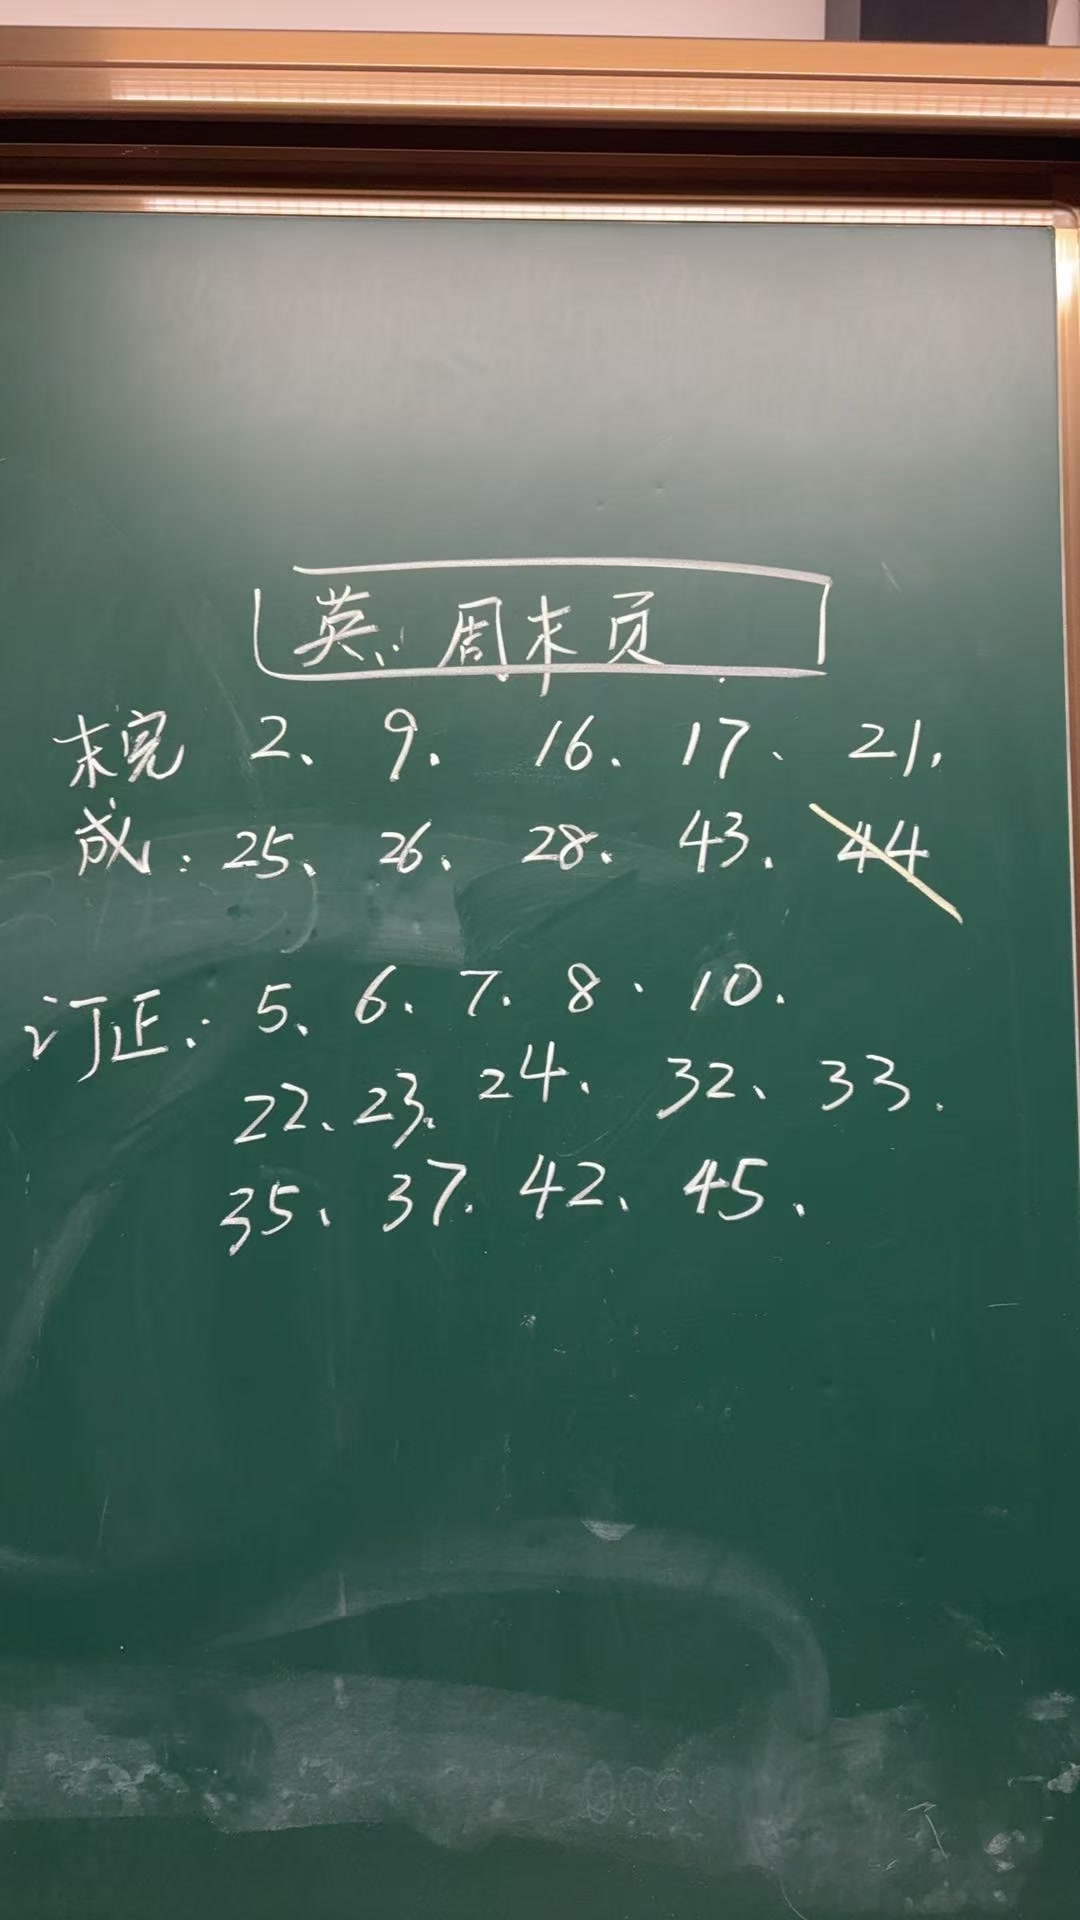 英：周末页
未完 2、9、16、17、21、
成：25、26、28、43、44
订正：5、6、7、8、10、
22、23、24、32、33、
35、37、42、45、